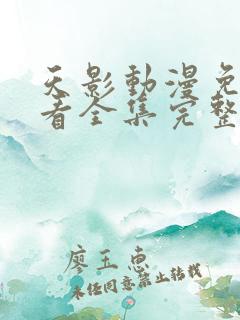 天影動漫免
看全集完整
廖玉惠
未经同意禁止转载